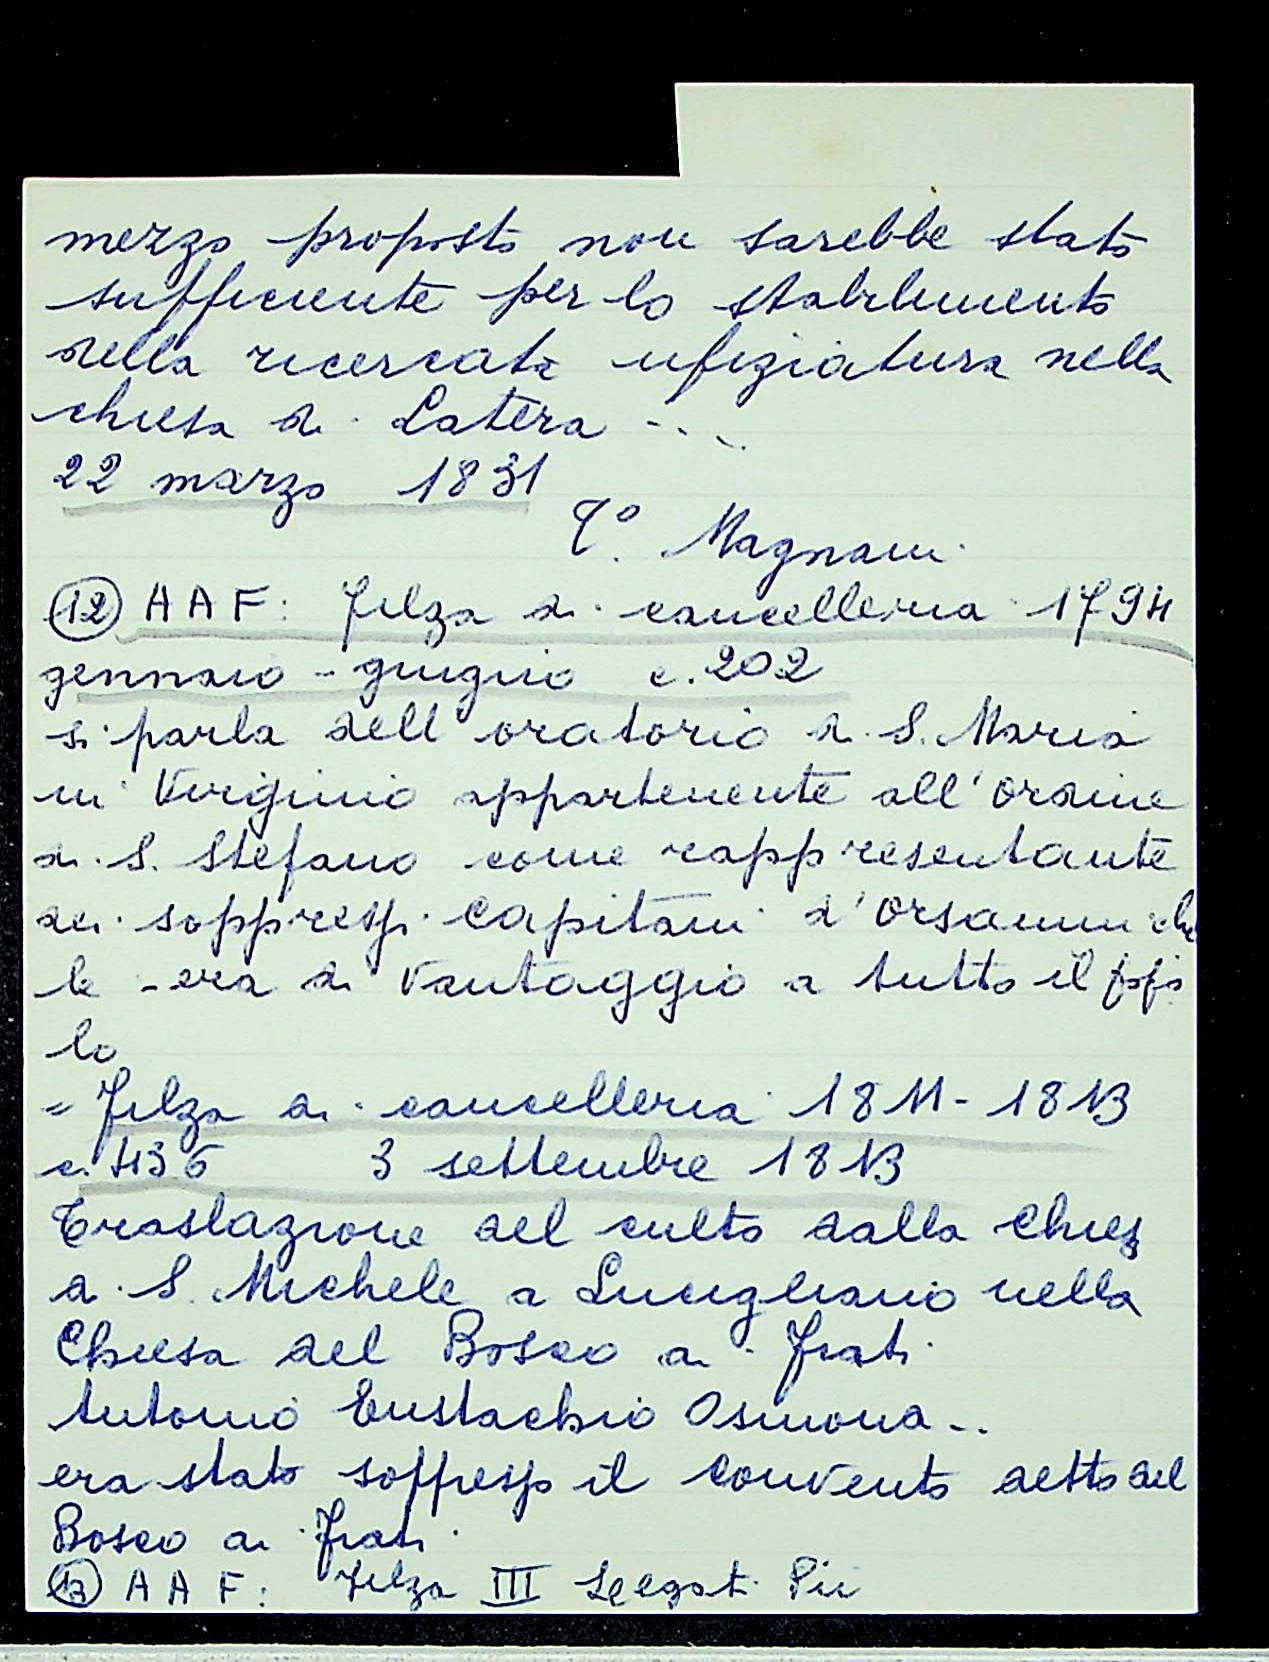 mezzo proposto non sarebbe stato
sufficiente per lo stabilimento
della ricercata ufiziatura nella
chiesa di Latera ....
22 marzo 1831
T°. Magnani
(12) AAF: Filza di cancelleria 1794
gennaio - giugno c. 202
si parla dell oratorio di S. Maria
in Virginio appartenente all'ordine
di S. Stefano come rappresentante
dei soppressi Capitani d'Orsanmiche
le - era di vantaggio a tutto il popo
lo
= Filza di cancelleria 1811-1813
c. 436 3 settembre 1813
Traslazione del culto dalla chies
a S. Michele a Lucigliano nella
Chiesa del Bosco ai Frati
Antonio Eustachio Osmona..
era stato soppresso il convento detto del
Bosco ai Frati
(13) AAF: Filza III Legati Pii